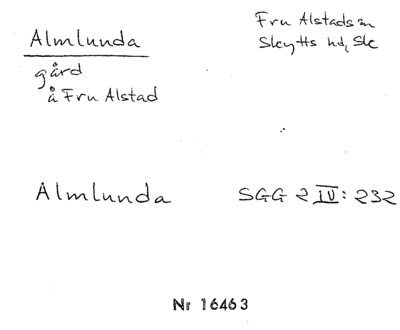 Almlunda
gård
å Fru Alstad
Fru Alstads sn
Skytts hd, Sk
Almlunda
SGG 2 IV: 232
Nr 16463